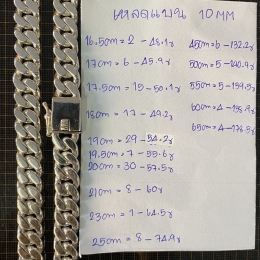 เหลี่ยมแบน 10 MM
16.50m = 2 - 48.1g
17cm = 6 - 45.9g
17.50m = 15 - 50.1g
18cm = 17 - 49.2g
19cm = 29 - 54.2g
19.50m = 7 - 55.6g
20cm = 30 - 57.5g
21cm = 8 - 60g
23cm = 1 - 64.5g
25cm = 8 - 74.9g
45cm = 6 - 132.2g
50cm = 5 - 140.9g
55cm = 5 - 159.5g
60cm = 4 -
65cm = 4 - 178.5g